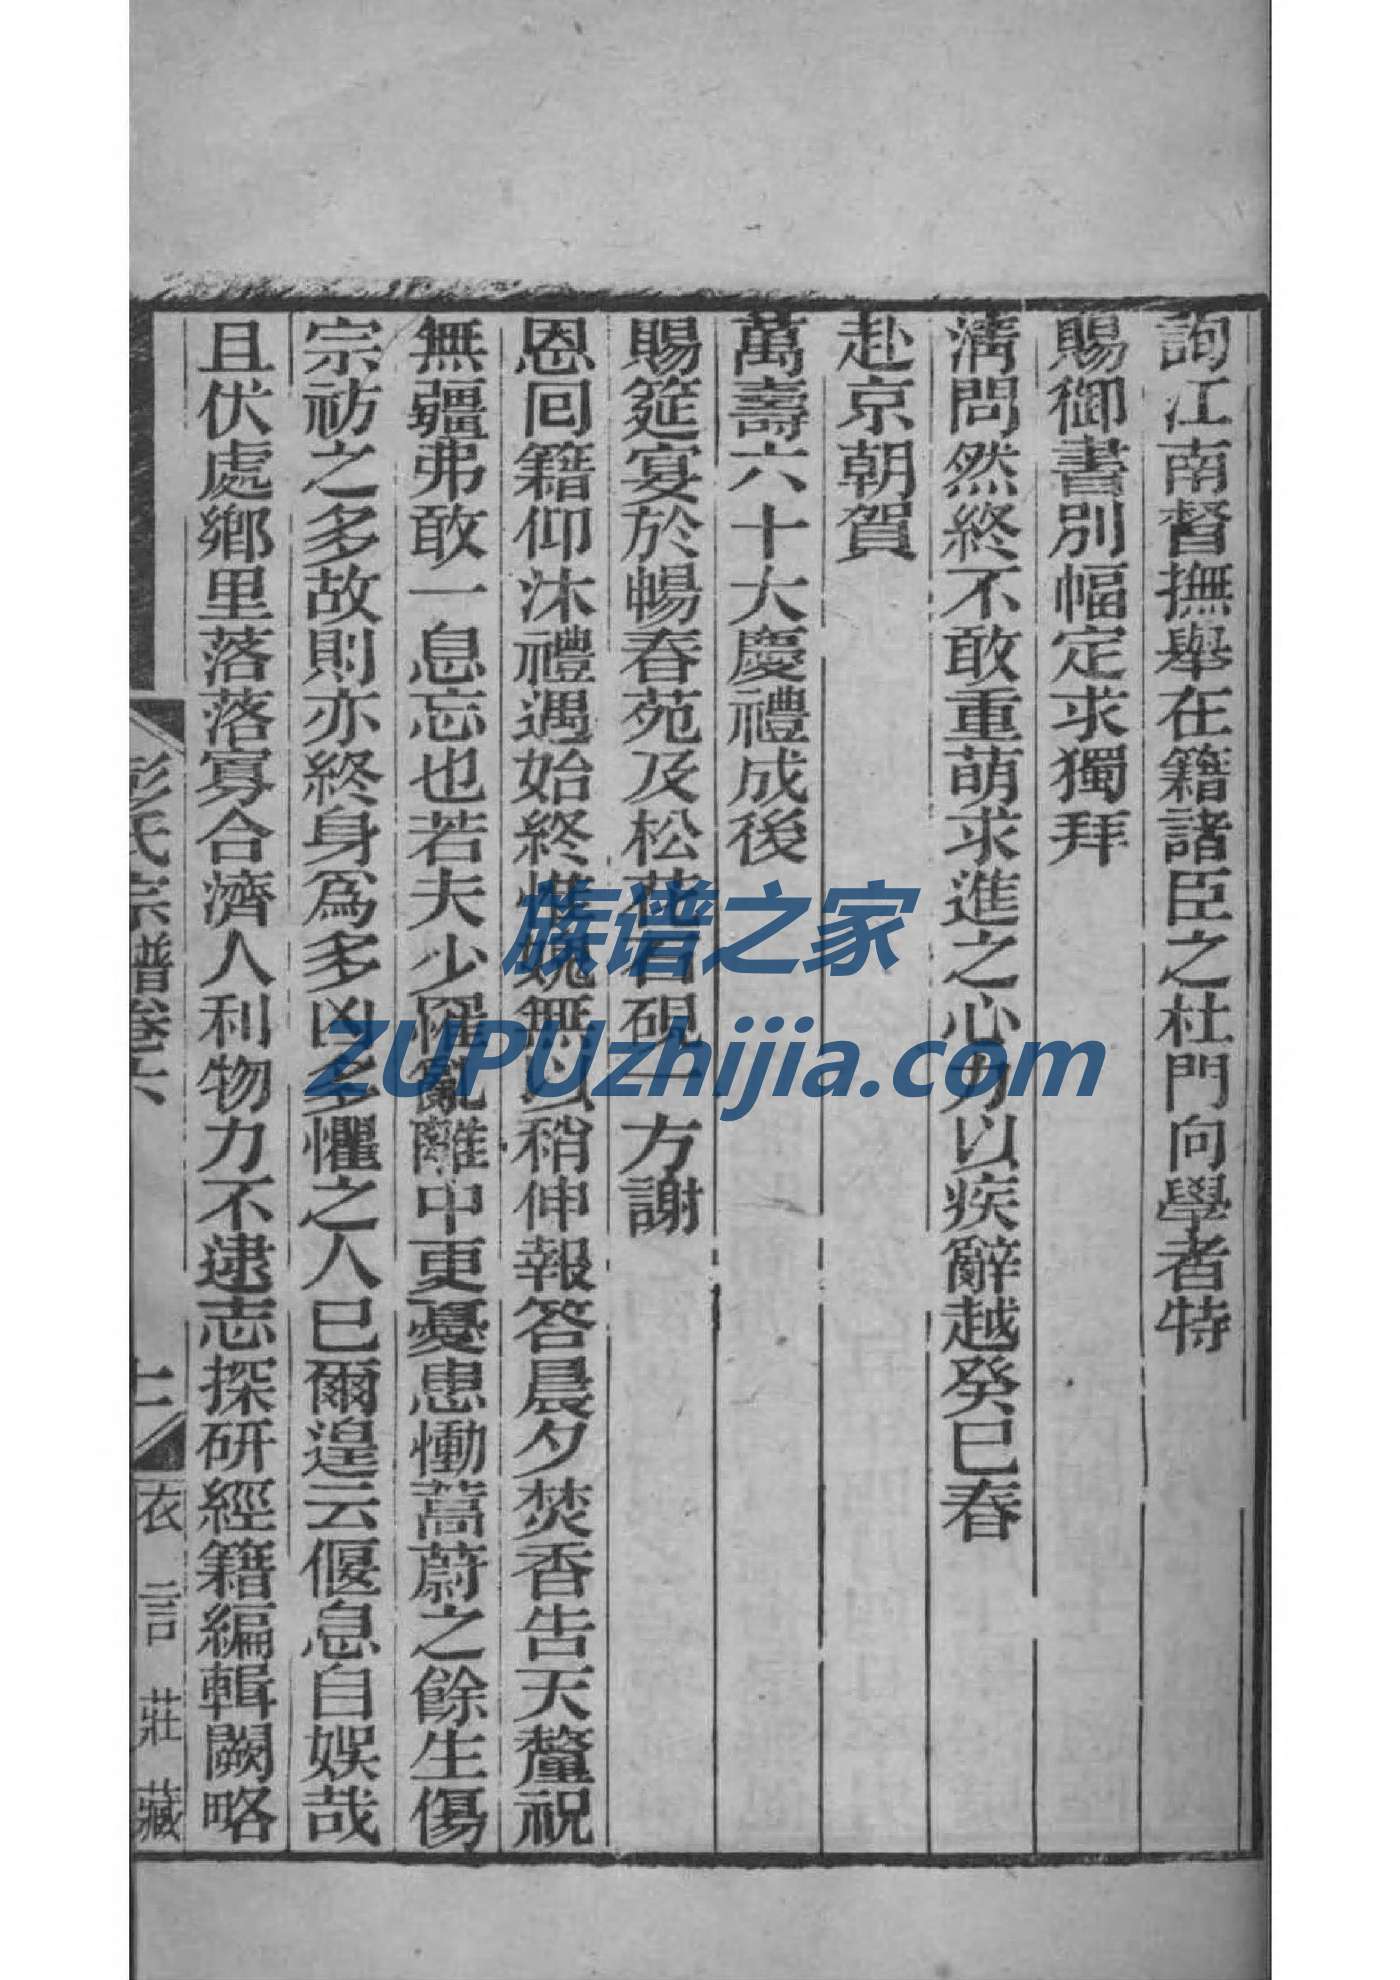 詢江南督撫舉在籍諸臣之杜門向學者特
賜御書別幅定求獨拜
淸問然終不敢重萌求進之心力以疾辭越癸巳春
赴京朝賀
萬壽六十大慶禮成後
賜筵宴於暢春苑及松花石硯一方謝
恩回籍仰沐禮遇始終慚媿無以稍伸報答晨夕焚香告天釐祝
無疆弗敢一息忘也若夫少罹亂離中更憂患慟蒿蔚之餘生傷
宗祊之多故則亦終身爲多凶多懼之人已爾遑云偃息自娛哉
且伏處鄉里落落寡合濟人利物力不逮志探研經籍編輯闕略
彭氏宗譜卷六
衣言莊藏
族谱之家
ZUPUzhijia.com